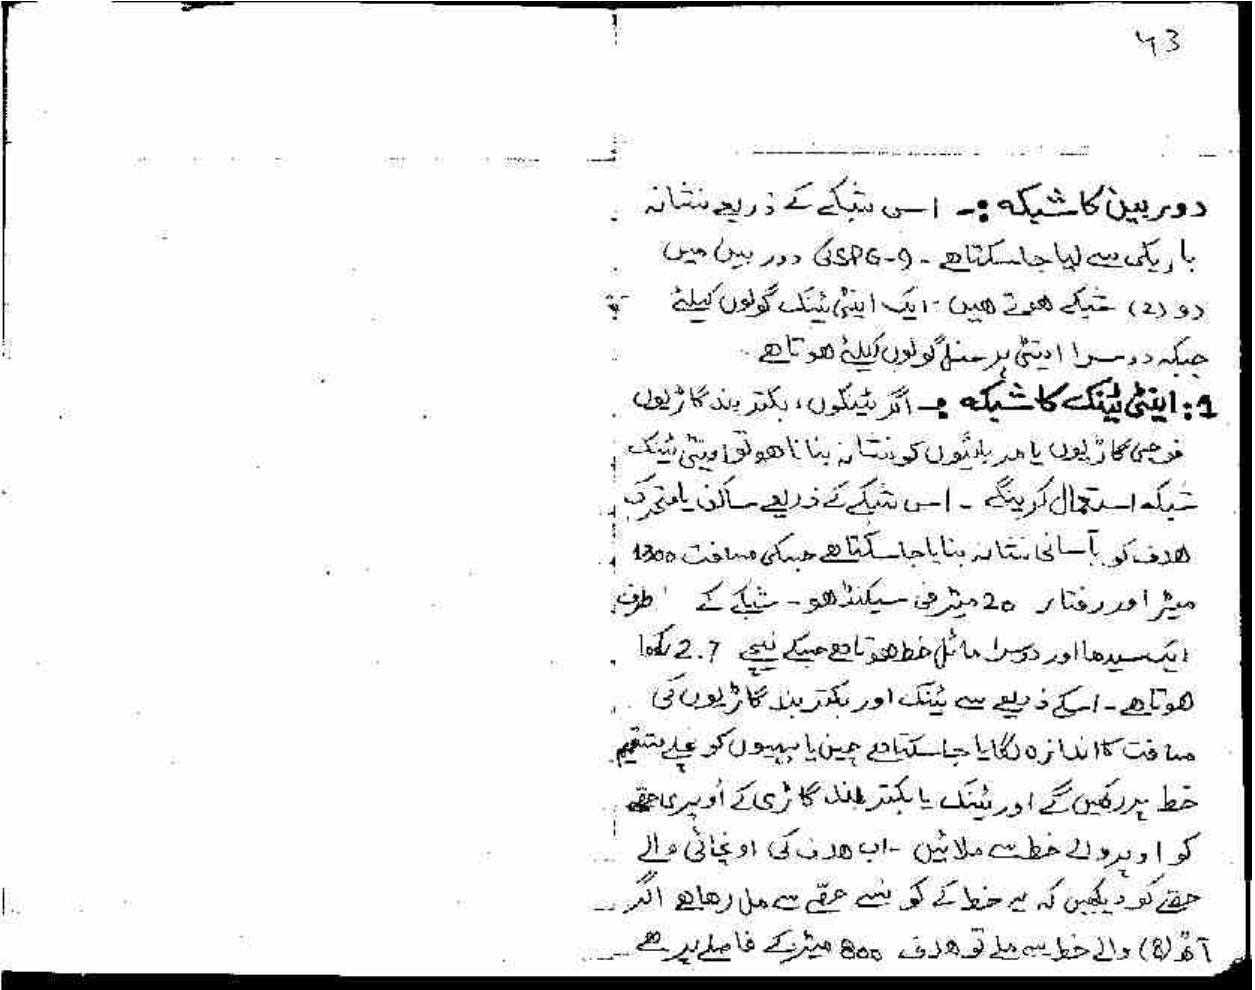 43
دوربین کا شبکہ :- اس شبکے کے ذریعے نشانہ
باریکی سے لیا جاسکتا ھے - SPG-9 کی دوربین میں
دو (2) شبکے ھوتے ھیں - ایک اینٹی ٹینک گولوں کیلئے
جبکہ دوسرا اینٹی پرسنل گولوں کیلئے ھوتا ھے
1: اینٹی ٹینک کا شبکہ :- اگر ٹینکوں، بکتر بند گاڑیوں
فوجی گاڑیوں یا کو نشانہ بنانا ھو تو اینٹی ٹینک
شبکہ استعمال کرینگے - اس شبکے کے ذریعے ساکن یا متحرک
ھدف کو بآسانی نشانہ بنایا جاسکتا ھے جسکی مسافت 1300
میٹر اور رفتار 20 میٹر فی سیکنڈ ھو - شبکے کے طرف
ایک سیدھا اور دوسرا مائل خط ھوتا ھے جسکے نیچے 2.7 لکھا
ھوتا ھے - اسکے ذریعے سے ٹینک اور بکتر بند گاڑیوں کی
مسافت کا اندازہ لگایا جاسکتا ھے چین یا پہیوں کو نچلے مستقیم
خط پر رکھیں گے اور ٹینک یا بکتر بند گاڑی کے اُوپری حصے
کو اوپر والے خط سے ملائیں - اب ھدف کی اونچائی والے
حصے کو دیکھیں کہ یہ خط کے کونسے حصے سے مل رھا ھے اگر
آٹھ (8) والے خط سے ملے تو ھدف 800 میٹر کے فاصلے پر ھے